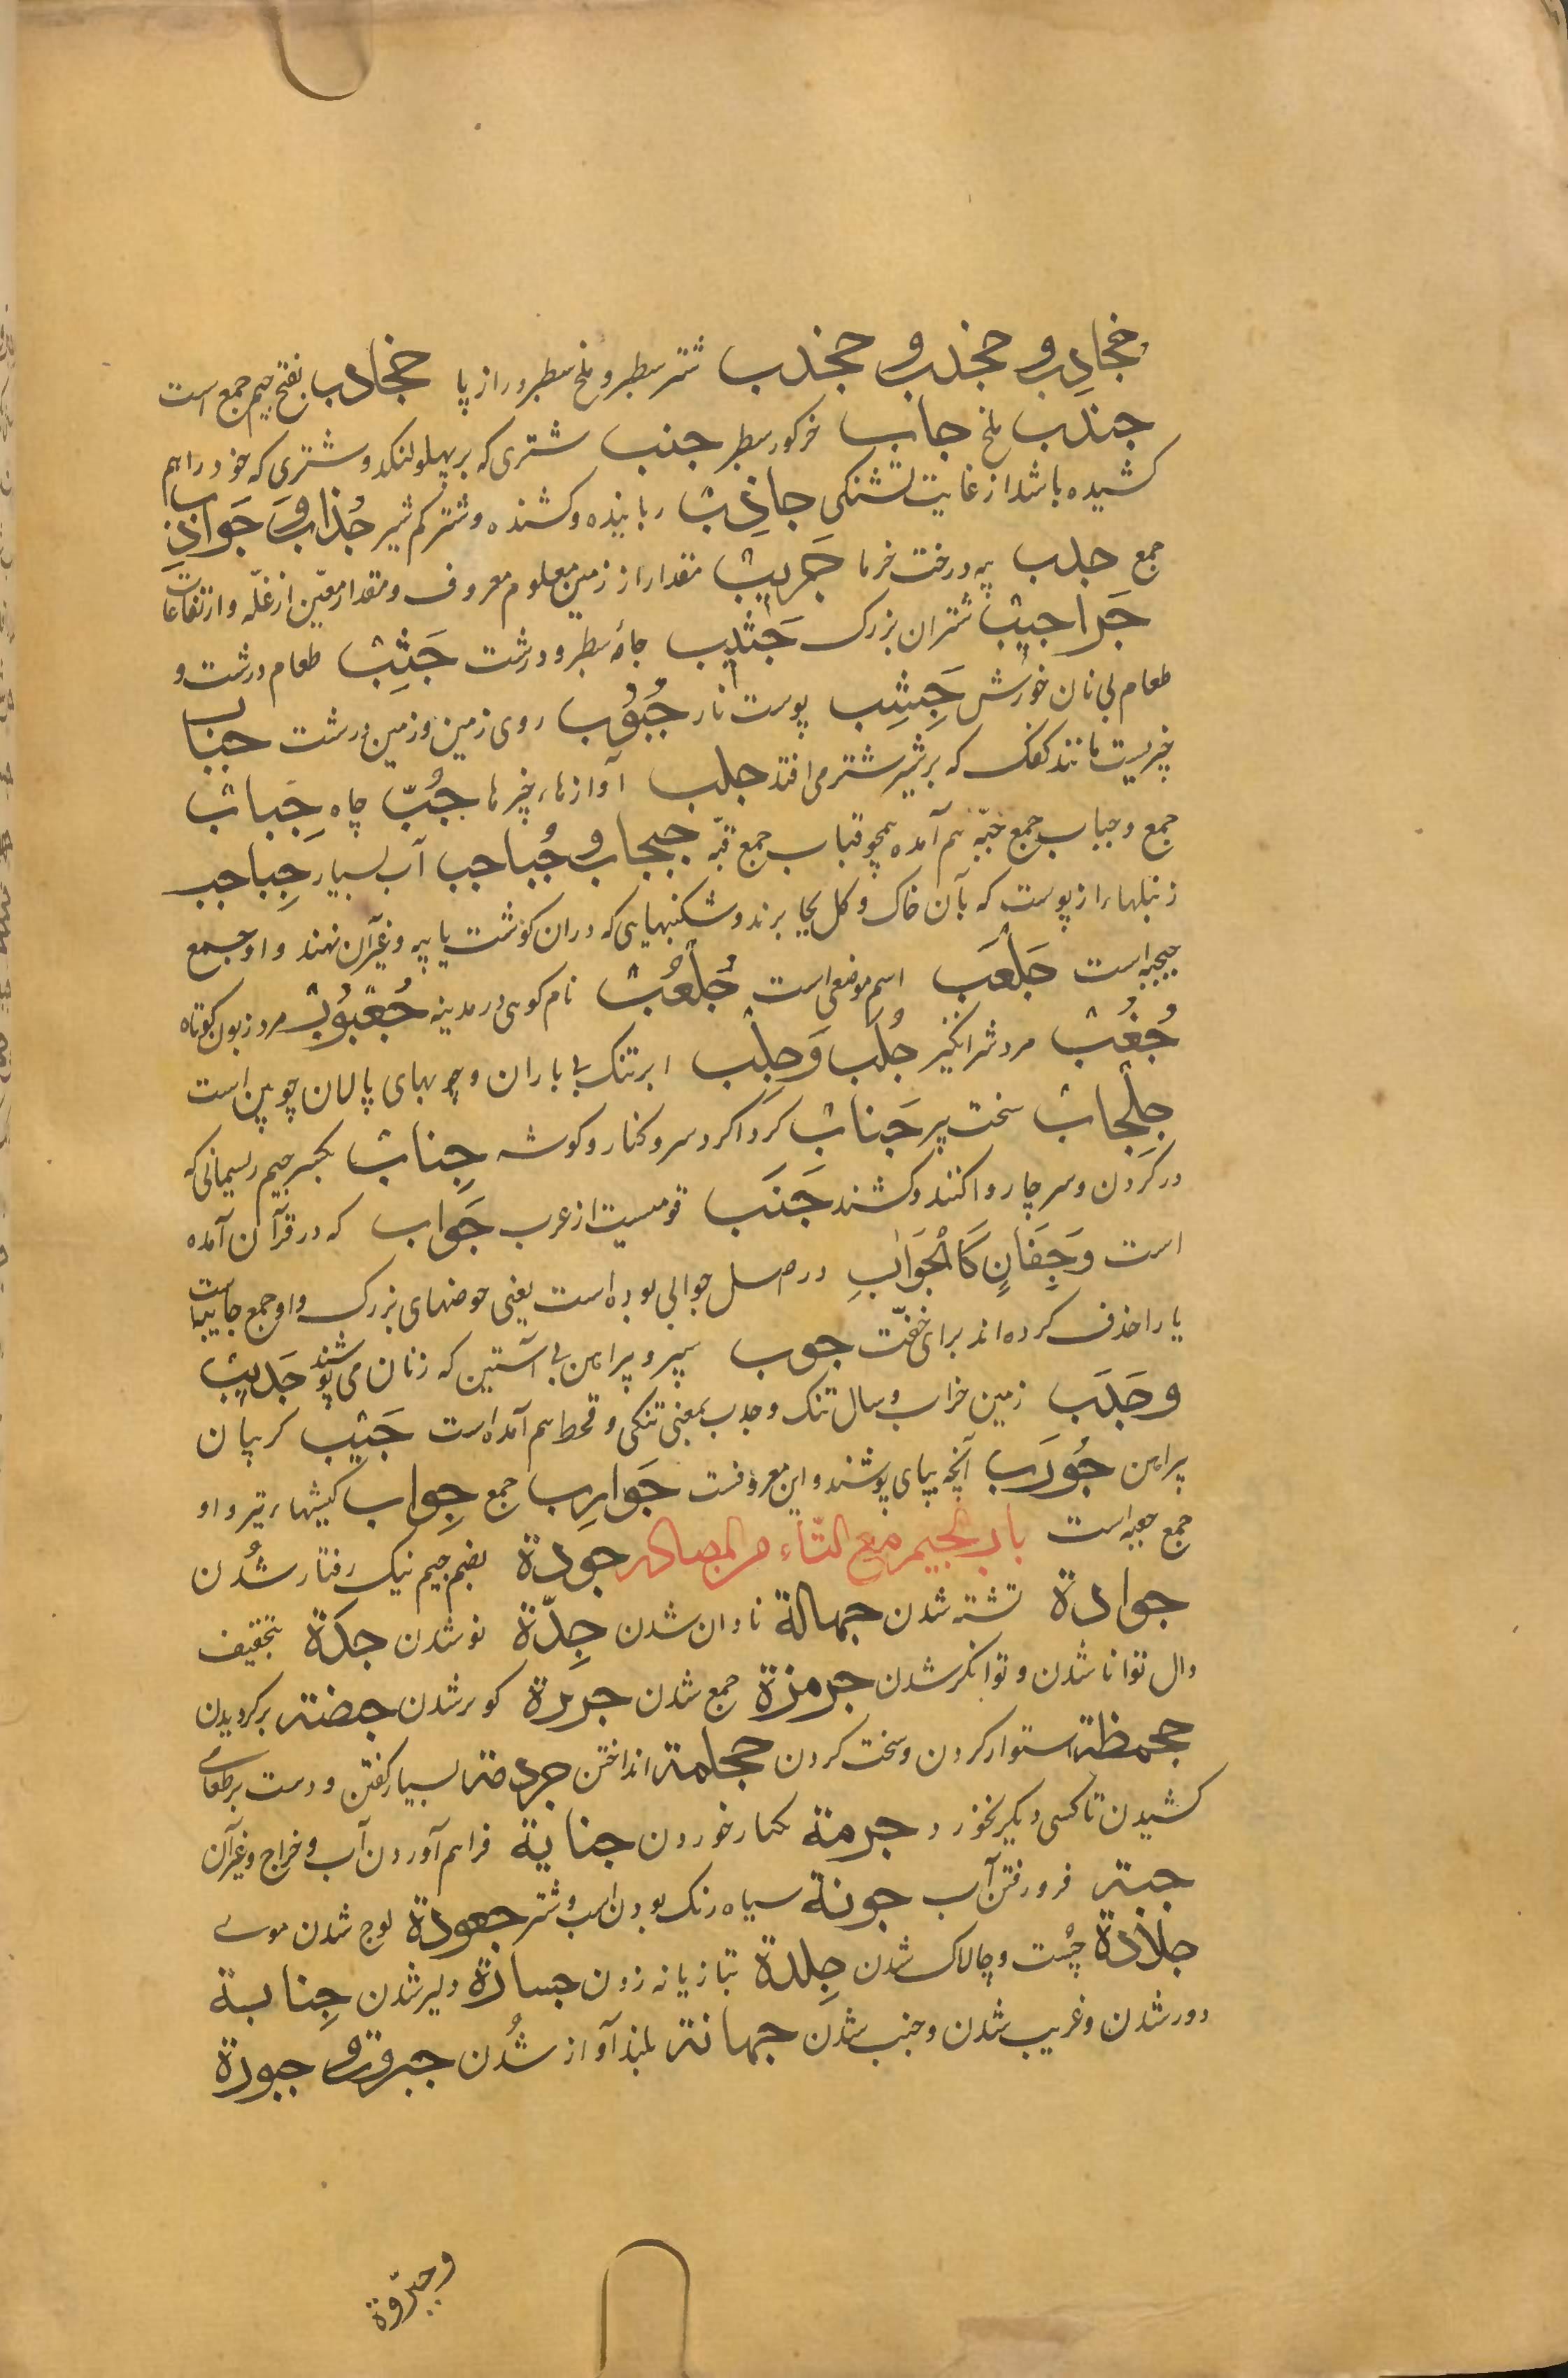 جخادب و جخدب و جخدب شتر سطبر و ملخ سطبر دراز پا جخادب بفتح جیم جمع است
جندب ملخ جاب خر کور سطبر جنب شتری که بر پهلو لنکد و شتری که خود را هم
کشیده باشد از غایت تشنکی جاذب رباینده و کشنده و شتر کم شیر جذاب و جواذب
جمع جذب پیه درخت خرما جریب مقدار از زمین معلوم معروف و مقدار معیّن از غلّه و ارتفاعات
جراجیب شتران بزرک جشیب جامهٔ سطبر و درشت جشب طعام درشت و
طعام بی نان خورش جشب پوست نار جبوب روی زمین و زمین درشت جباب
چیزیست مانند کفک که بر شیر شتر می افتد جلب آوازها، چیزها جُبّ چاه جِباب
جمع و جباب جمع جبّه هم آمده همچو قباب جمع قبّه جبجاب و جُباجب آب بسیار جباجب
زنبلها، از پوست که بآن خاک و کل بجا برند و شکنبهایی که دران کوشت یا پیه و غیر آن نهند و او جمع
جبجبه است جلعب اسم موضعی است جُلعُب نام کوهی در مدینه جُعبوب مرد زبون کوتاه
جُغُب مرد شر انکیز جُلب وَجِلب ابر تنک بی باران و چوبهای پالان چوبین است
جِلحاب سخت پیر جَناب کرداکرد سر و کنار و کوشه جِناب بکسر جیم ریسمانی که
در کردن و سر چاروا کنند و کشند جَنَب قومیست از عرب جَواب که در قرآن آمده
است وَجِفَانٍ کَالْجَوَابِ در اصل جوابی بوده است یعنی حوضهای بزرک و او جمع جابیه است
یا را حذف کرده اند برای خفّت جوب سپر و پیراهن بی آستین که زنان می پوشند جَدیب
و جَدَب زمین خراب و سال تنک و جدب بمعنی تنکی و قحط هم آمده است جَیب کریبان
پیراهن جُورَب آنچه بپای پوشند و این معروفست جَوارِب جمع جِعاب کیشها، تیر و او
جمع جعبه است باب الجیم مع التّاء من المصادر جودة بضم جیم نیک رفتار شُدن
جوادة تشنه شدن جهالة نادان شدن جِدّة نو شدن جدَة بتخفیف
دال توانا شدن و توانکر شدن جرمزة جمع شدن جربزة کوبر شدن جضنه برکردیدن
جحمظة استوار کردن و سخت کردن جحلمة انداختن جردمة بسیار کفتن و دست بر طعامی
کشیدن تا کسی دیکر نخورد جرمة کنار خوردن جبایة فراهم آوردن آب و خراج و غیر آن
جبته فرو رفتن آب جونة سیاه رنک بودن اسب و شتر جعودة لوچ شدن موی
جلادة چُست و چالاک شدن جِلدة بتازیانه زدن جسارة دلیر شدن جِنابة
دور شدن و غریب شدن و جنب شدن جهانة بلند آواز شُدن جبروة و جبورة
و جبروّة